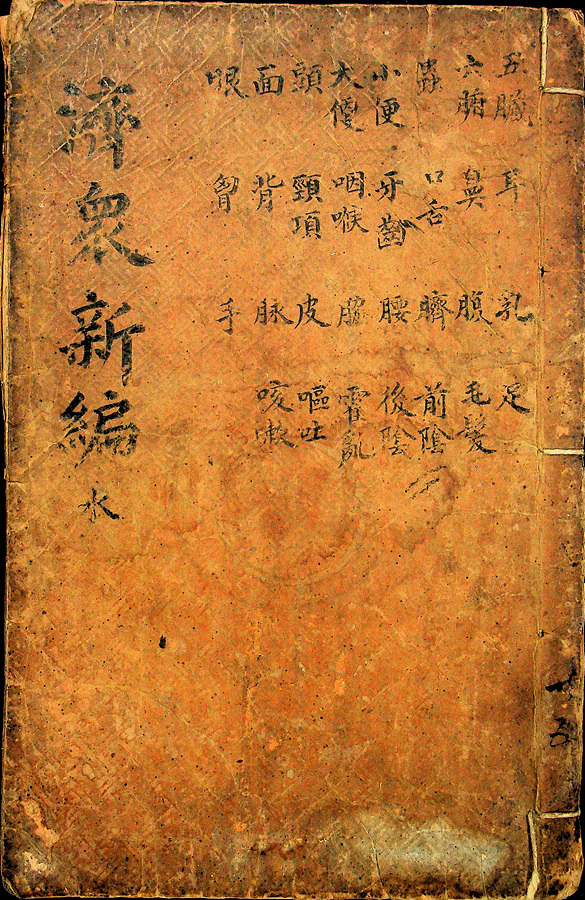 五臟 耳 乳 足
六腑 鼻 腹 毛髮
蟲 口舌 臍 前陰
小便 牙齒 腰 後陰
大便 咽喉 脇 霍亂
頭 頸項 皮 嘔吐
面 背 脉 咳嗽
眼 胷 手
濟衆新編 水